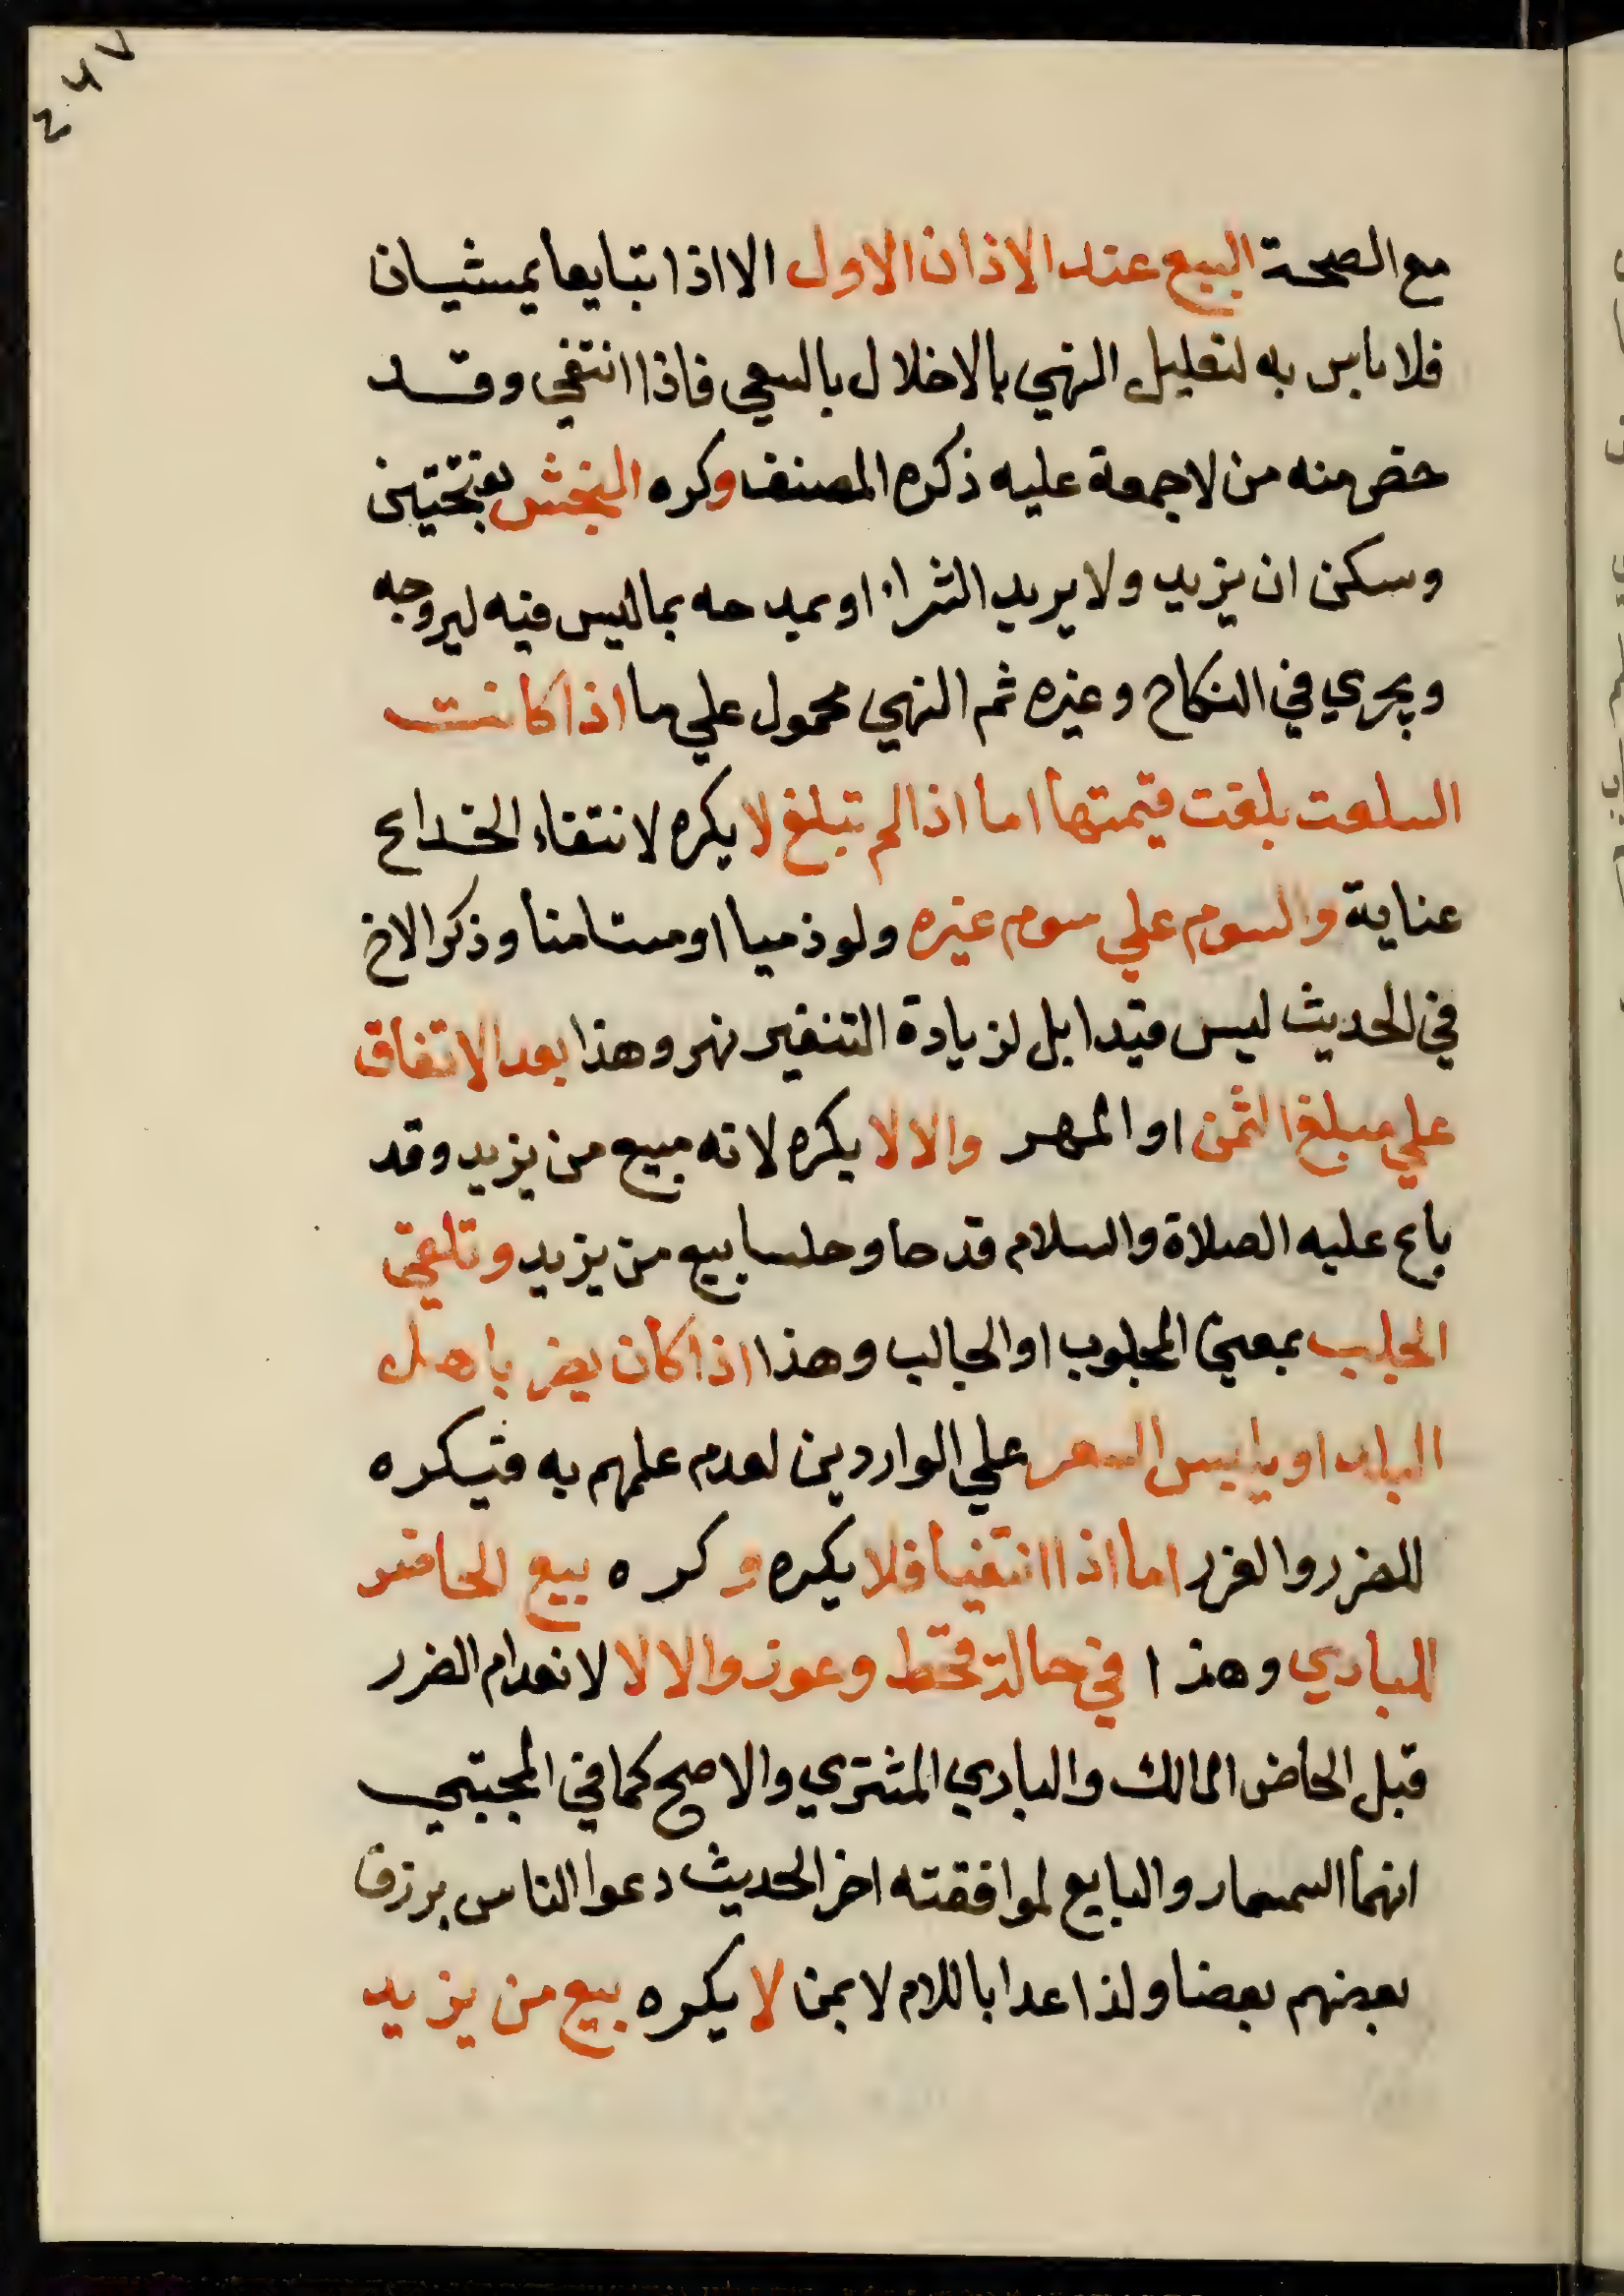 ٢٤٧
مع الصحة البيع عند الاذان الاول الا اذا تبايعا يمشيان
فلا باس به لتعليل النهي بالاخلال بالسعي فاذا انتفي وقد
خص منه من لا جمعة عليه ذكره المصنف وكره النجش بفتحتين
وسكن ان يزيد ولا يريد الشراء او يمدحه بما ليس فيه ليروجه
ويجري في النكاح وغيره ثم النهي محمول علي ما اذا كانت
السلعت بلغت قيمتها اما اذا لم تبلغ لا يكره لانتفاء الخداع
عناية والسوم علي سوم غيره ولو ذميا او مستامنا وذكر الاخ
في الحديث ليس قيدا بل لزيادة التنفير نهر وهذا بعد الاتفاق
علي مبلغ الثمن او المهر والا لا يكره لانه مبيع من يزيد وقد
باع عليه الصلاة والسلام قدحا وحلسا ببيع من يزيد وتلقي
الجلب بمعني المجلوب او الجالب وهذا اذا كان يضر باهل
البلد او يلبس السعر علي الواردين لعدم علمهم به فيكره
للضرر والغرر اما اذا انتفيا فلا يكره وكره بيع الحاضر
للبادي وهذا في حالة قحط وعوز والا لا لانعدام الضرر
قبل الحاضر المالك والبادي المشتري والاصح كما في المجتبي
انهما السمسار والبايع لموافقته اخر الحديث دعوا الناس يرزق
بعضهم بعضا ولذا عدا باللام لا بمن لا يكره بيع من يزيد